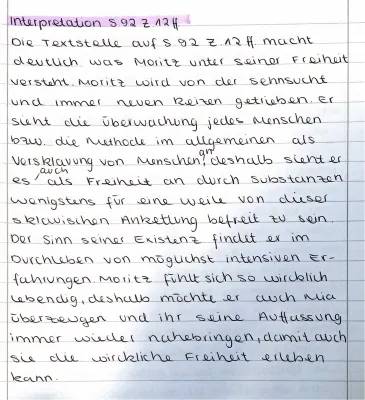 Interpretation S 92 Z 12 ff
Die Textstelle auf S 92 Z. 12 ff. macht
deutlich was Moritz unter seiner Freiheit
versteht. Moritz wird von der Sehnsucht
und immer neuen Reizen getrieben. Er
sieht die Überwachung jedes Menschen
bzw. die Methode im allgemeinen als
Versklavung von Menschen an, deshalb sieht er
es auch als Freiheit an durch Substanzen
wenigstens für eine Weile von dieser
sklavischen Ankettung befreit zu sein.
Der Sinn seiner Existenz findet er im
Durchleben von möglichst intensiven Er-
fahrungen. Moritz fühlt sich so wircklich
lebendig, deshalb möchte er auch Mia
überzeugen und ihr seine Auffassung
immer wieder nahebringen, damit auch
sie die wirckliche Freiheit erleben
kann.